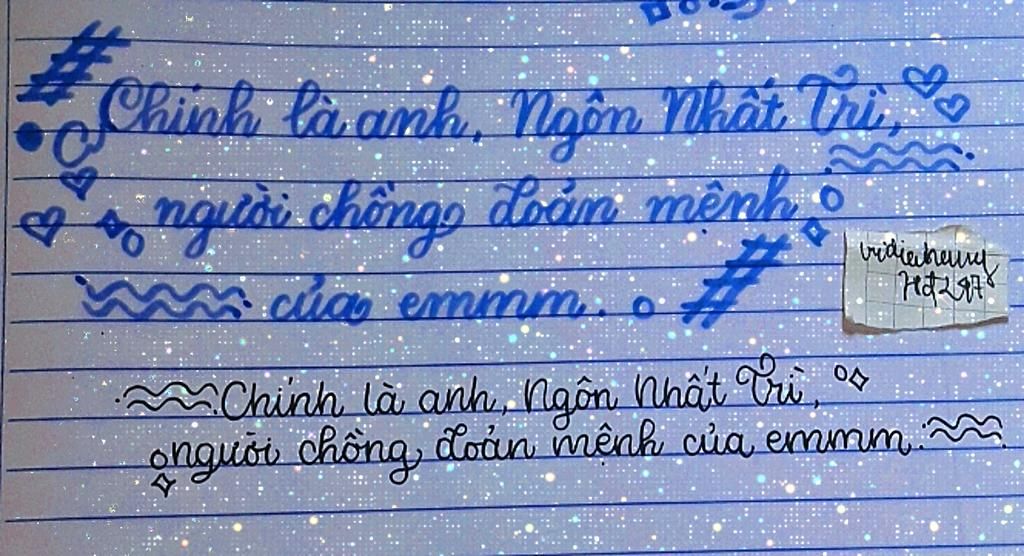 #
Chính là anh, Ngôn Nhất Trì,
người chồng đoản mệnh
của emmm. #
Hđ297
Chính là anh, Ngôn Nhất Trì,
người chồng đoản mệnh của emmm.